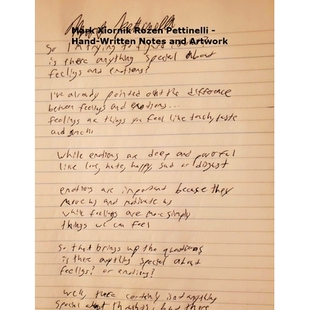 Mark Xiornik Rozen Pettinelli -
Hand-Written Notes and Artwork
So I'm trying to
is there anything special about
feelings and emotions?
I've already pointed out the difference
between feelings and emotions..
feelings are things you feel like touch, taste
and smell
while emotions are deep and powerful
like love, hate, happy, sad or disgust
emotions are important because they
move us and motivate us
while feelings are more simply
things we can feel
So that brings up the questions
is there anything special about
feelings? or emotions?
well, there certainly isn't anything
special about thoughts,